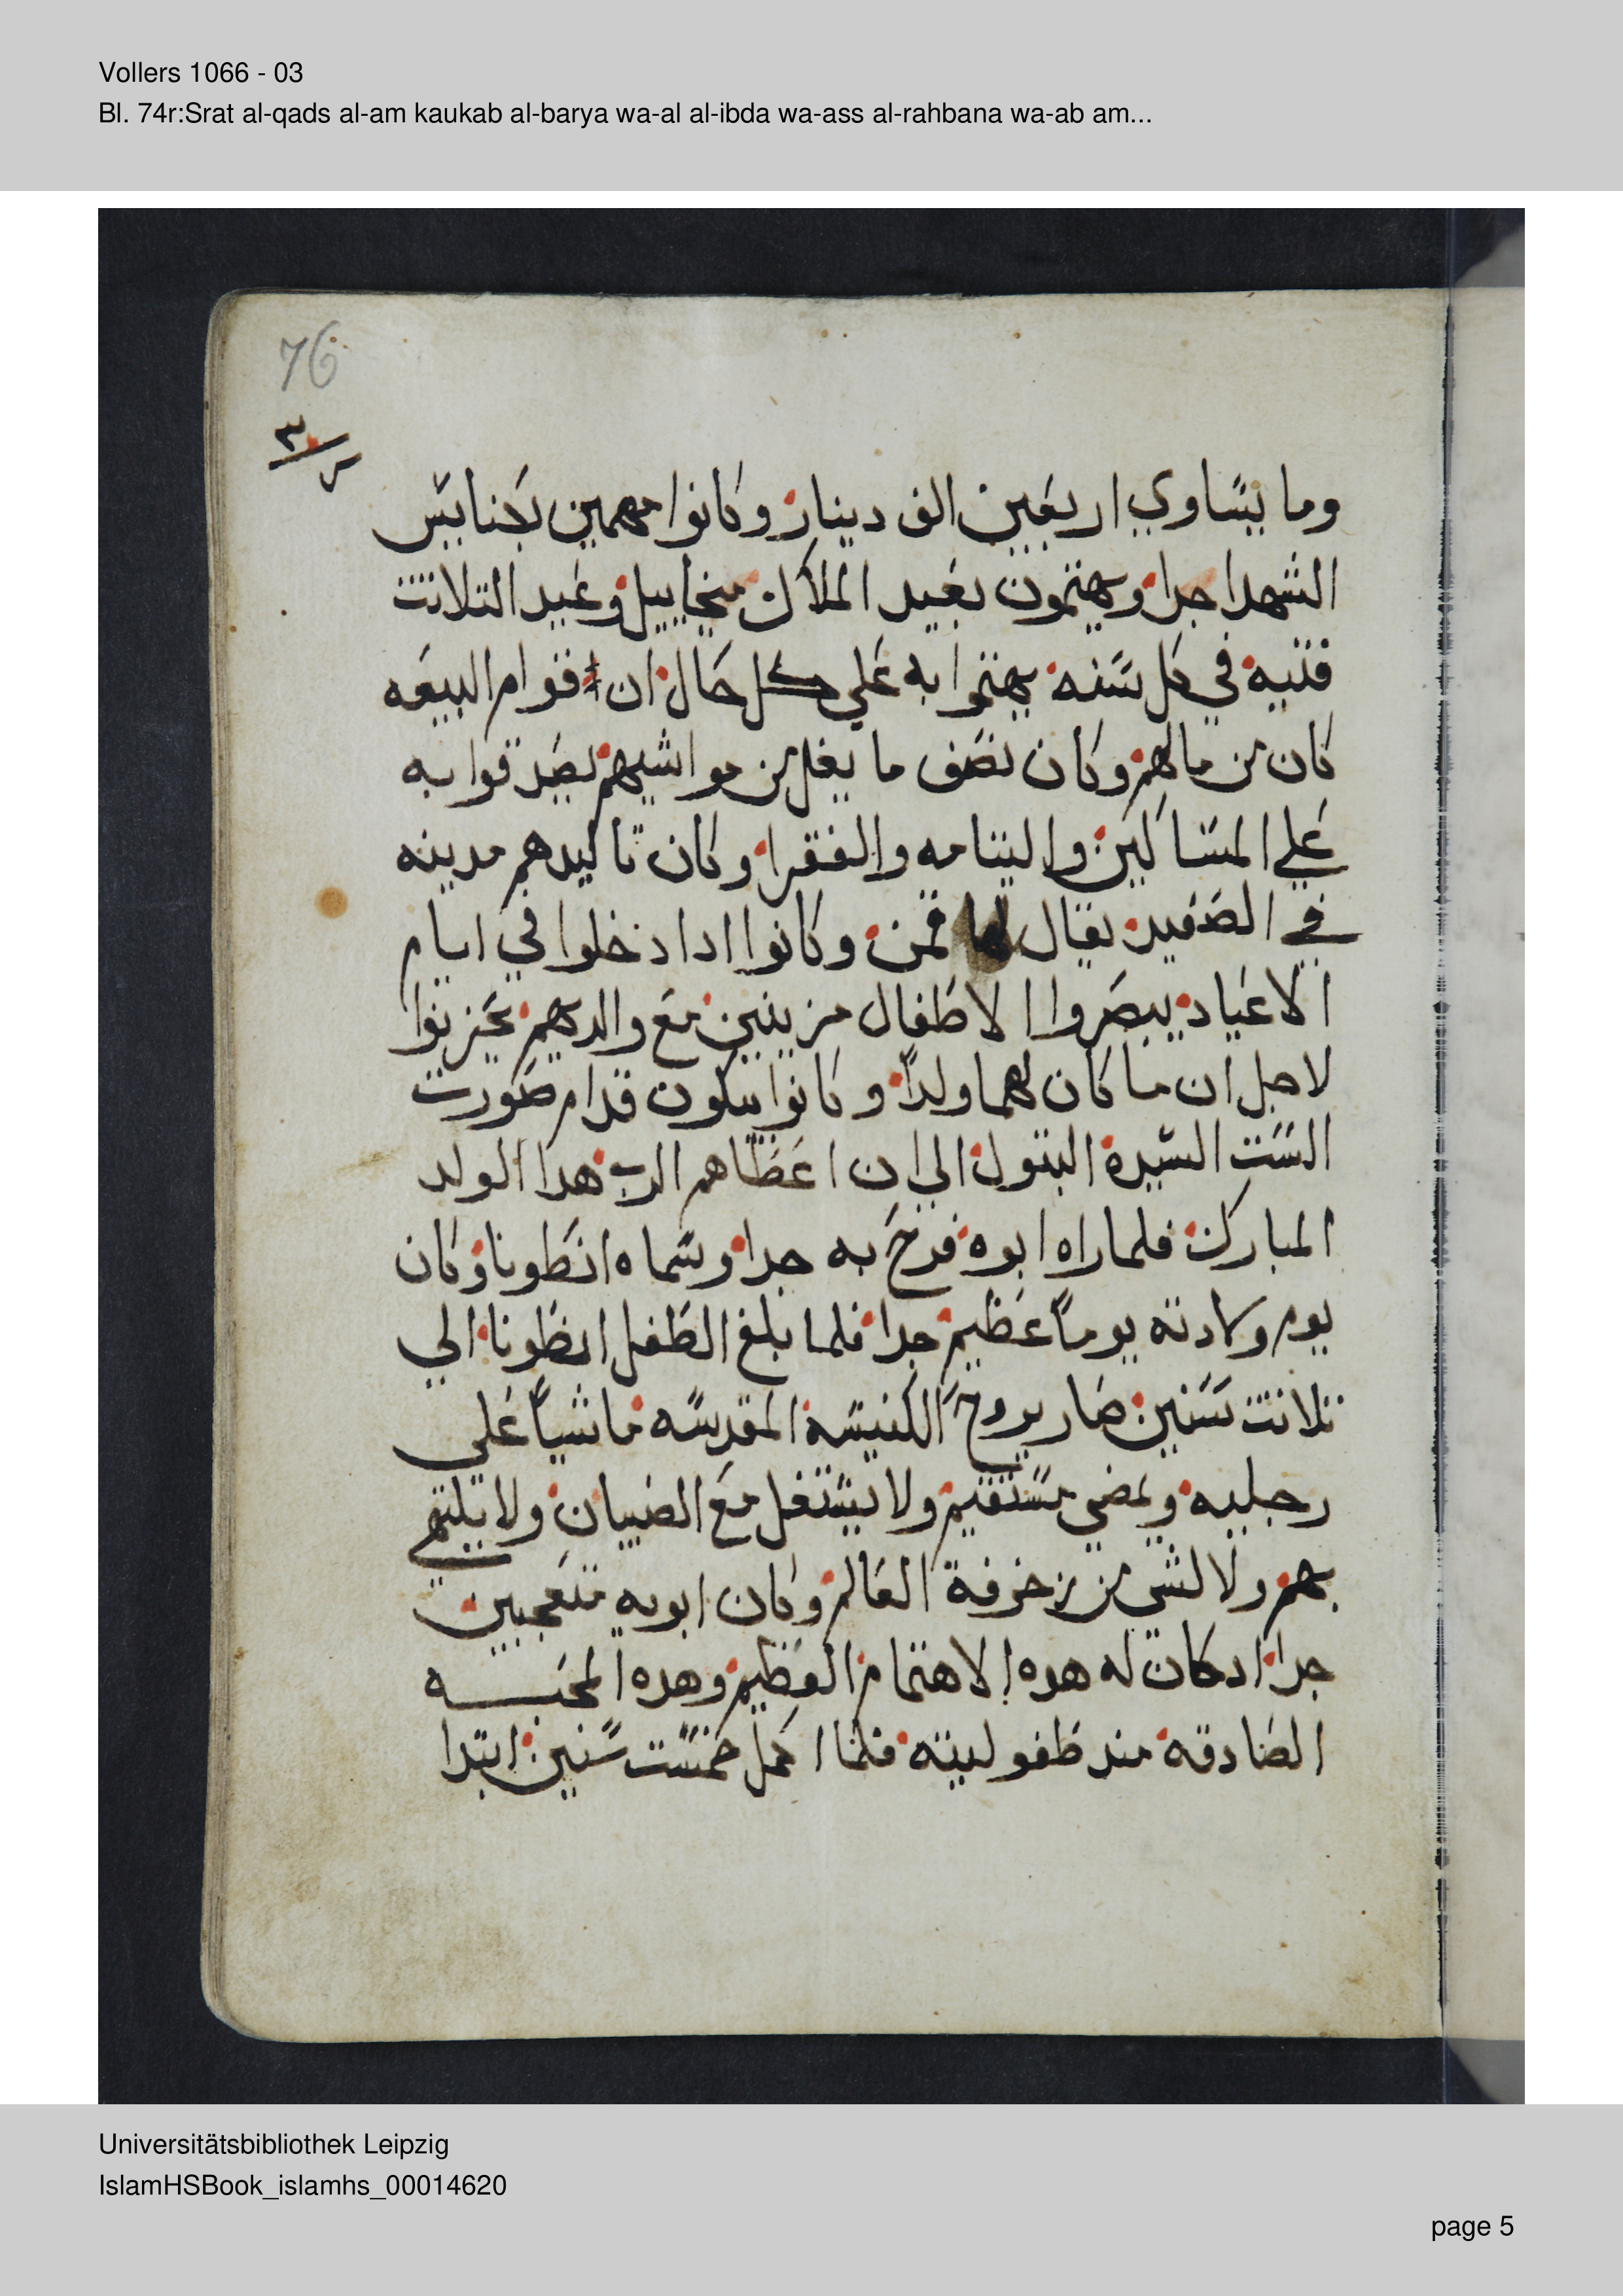 Vollers 1066 - 03
Bl. 74r:Srat al-qads al-am kaukab al-barya wa-al al-ibda wa-ass al-rahbana wa-ab am...
76
وما يساوي اربعين الف دينار وكانوا مهمين بكنايس
الشهدا جدا ويهتمون بعيد الملاك ميخاييل وعيد التلاتت
فتيه في كل سنه يهتموا به علي كل حال ان قوام البيعه
كان من مالهم وكان نصف ما يغل من مواشيهم يصدقوا به
علي المساكين واليتامه والفقرا وكان تاليدهم مدينه
في الصعيد يقال لها قمن وكانوا ادا دخلوا في ايام
الاعياد يبصروا الاطفال مزينين مع والديهم يحزنوا
لاجل ان ما كان لهما ولداً وكانوا يبكون قدام صورت
الست السيدة البتول الي ان اعطاهم الرب هدا الولد
المبارك فلما راه ابوه فرح به جدا وسماه انطونا وكان
يوم ولادته يوماً عظيم جدا فلما بلغ الطفل انطونا الي
تلاتت سنين صار يروح الكنيسه المقدسه ماشياً علي
رجليه ويمضي مستقيم ولا يشتغل مع الصبيان ولا يلتهي
بهم ولا لشي من زخرفة العالم وكان ابويه متعجبين
جدا ادكان له هده الاهتمام العظيم وهده المحبه
الصادقه مند طفوليته فلما اكمل خمست سنين ابتدا
Universitätsbibliothek Leipzig
IslamHSBook_islamhs_00014620
page 5